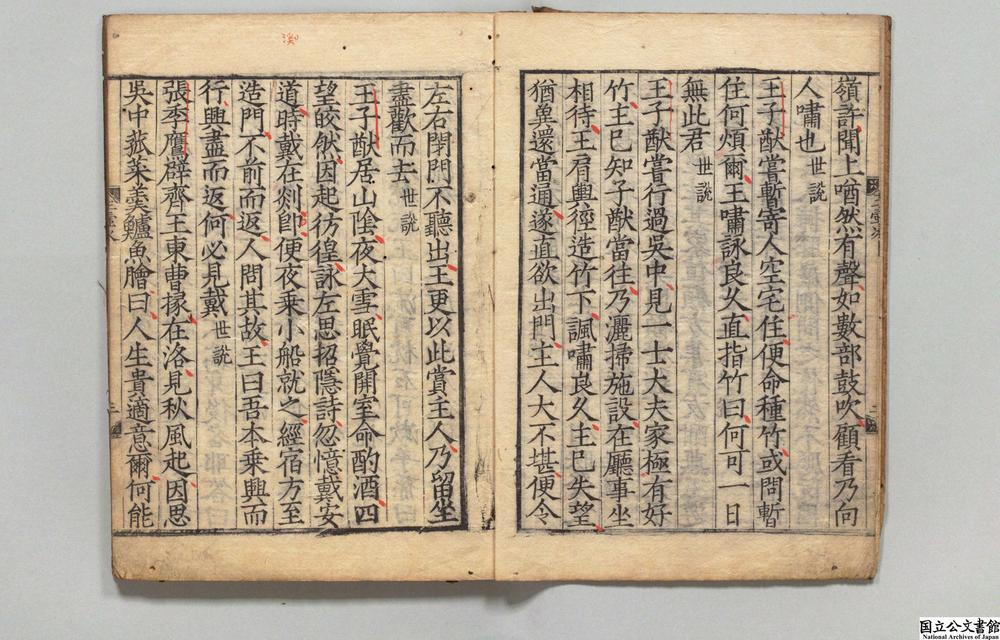 嶺許聞上㗜然有聲如數部鼓吹顧看乃向
人嘯也世説
王子猷嘗暫寄人空宅住便命種竹或問暫
住何煩爾王嘯詠良久直指竹曰何可一日
無此君世説
王子猷嘗行過吳中見一士大夫家極有好
竹主已知子猷當往乃灑掃施設在廳事坐
相待王肩輿徑造竹下諷嘯良久主已失望
猶兾還當通遂直欲出門主人大不堪便令
左右閉門不聽出王更以此賞主人乃留坐
盡歡而去世説
王子猷居山陰夜大雪眠覺開室命酌酒四
望皎然因起彷徨詠左思招隱詩忽憶戴安
道時戴在剡卽便夜乘小船就之經宿方至
造門不前而返人問其故王曰吾本乘興而
行興盡而返何必見戴世説
張季鷹辟齊王東曹掾在洛見秋風起因思
吳中菰菜羮鱸魚膾曰人生貴適意爾何能
国立公文書館
National Archives of Japan